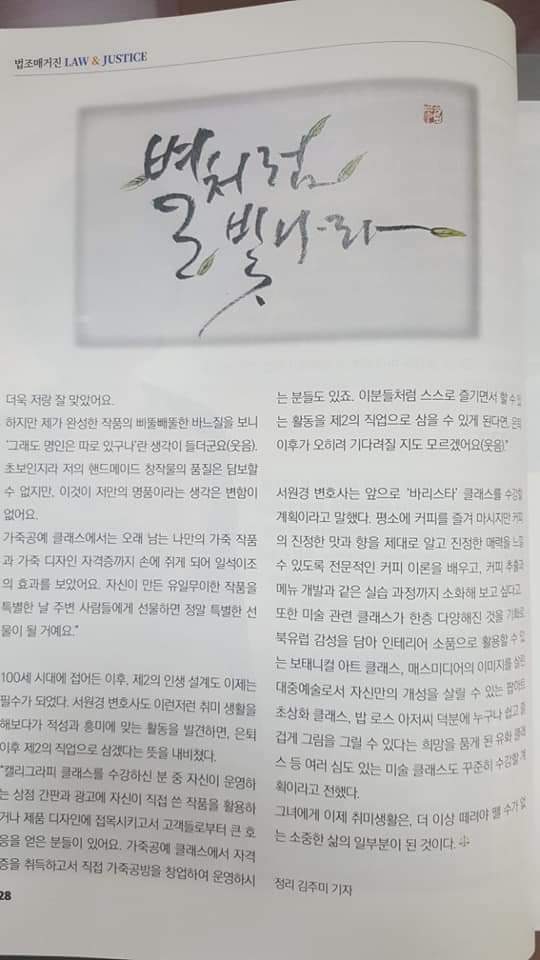 법조매거진 LAW & JUSTICE
별처럼
빛나라
더욱 저랑 잘 맞았어요.
하지만 제가 완성한 작품의 삐뚤빼뚤한 바느질을 보니
'그래도 명인은 따로 있구나'란 생각이 들더군요(웃음).
초보인지라 저의 핸드메이드 창작물의 품질은 담보할
수 없지만, 이것이 저만의 명품이라는 생각은 변함이
없어요.
가죽공예 클래스에서는 오래 남는 나만의 가죽 작품
과 가죽 디자인 자격증까지 손에 쥐게 되어 일석이조
의 효과를 보았어요. 자신이 만든 유일무이한 작품을
특별한 날 주변 사람들에게 선물하면 정말 특별한 선
물이 될 거예요."
100세 시대에 접어든 이후, 제2의 인생 설계도 이제는
필수가 되었다. 서원경 변호사도 이런저런 취미 생활을
해보다가 적성과 흥미에 맞는 활동을 발견하면, 은퇴
이후 제2의 직업으로 삼겠다는 뜻을 내비쳤다.
"캘리그라피 클래스를 수강하신 분 중 자신이 운영하
는 상점 간판과 광고에 자신이 직접 쓴 작품을 활용하
거나 제품 디자인에 접목시키고서 고객들로부터 큰 호
응을 얻은 분들이 있어요. 가죽공예 클래스에서 자격
증을 취득하고서 직접 가죽공방을 창업하여 운영하시
28
는 분들도 있죠. 이분들처럼 스스로 즐기면서 할 수 있
는 활동을 제2의 직업으로 삼을 수 있게 된다면, 은퇴
이후가 오히려 기다려질 지도 모르겠어요(웃음)."
서원경 변호사는 앞으로 '바리스타' 클래스를 수강할
계획이라고 말했다. 평소에 커피를 즐겨 마시지만 커피
의 진정한 맛과 향을 제대로 알고 진정한 매력을 느낄
수 있도록 전문적인 커피 이론을 배우고, 커피 추출과
메뉴 개발과 같은 실습 과정까지 소화해 보고 싶다고.
또한 미술 관련 클래스가 한층 다양해진 것을 기회로
북유럽 감성을 담아 인테리어 소품으로 활용할 수 있
는 보태니컬 아트 클래스, 매스미디어의 이미지를 살린
대중예술로서 자신만의 개성을 살릴 수 있는 팝아트
초상화 클래스, 밥 로스 아저씨 덕분에 누구나 쉽고 즐
겁게 그림을 그릴 수 있다는 희망을 품게 된 유화 클래
스 등 여러 심도 있는 미술 클래스도 꾸준히 수강할 계
획이라고 전했다.
그녀에게 이제 취미생활은, 더 이상 떼려야 뗄 수가 없
는 소중한 삶의 일부분이 된 것이다.
정리 김주미 기자